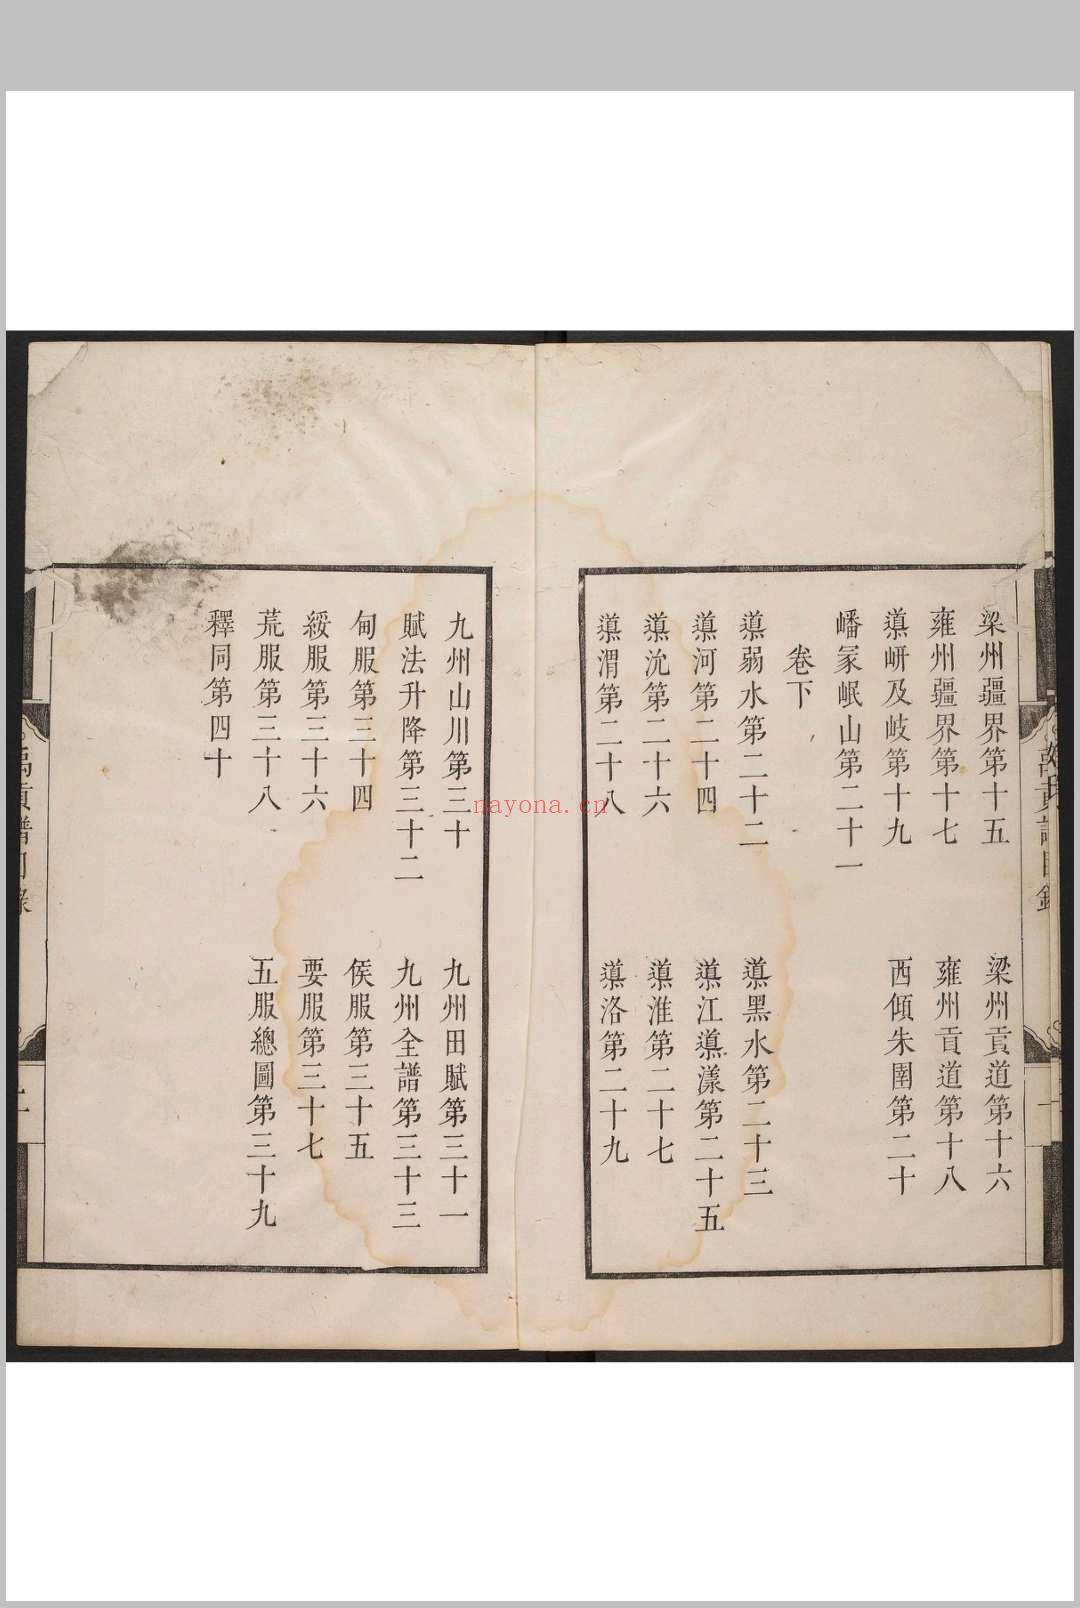 梁州疆界第十五
梁州貢道第十六
雍州疆界第十七
雍州貢道第十八
導岍及岐第十九
西傾朱圉第二十
嶓冢岷山第二十一
卷下
導弱水第二十二
導黑水第二十三
導河第二十四
導江導漾第二十五
導沇第二十六
導淮第二十七
導渭第二十八
導洛第二十九
九州山川第三十
九州田賦第三十一
賦法升降第三十二
九州全譜第三十三
甸服第三十四
侯服第三十五
綏服第三十六
要服第三十七
荒服第三十八
五服總圖第三十九
釋同第四十
禹貢譜目錄
nayona.cn